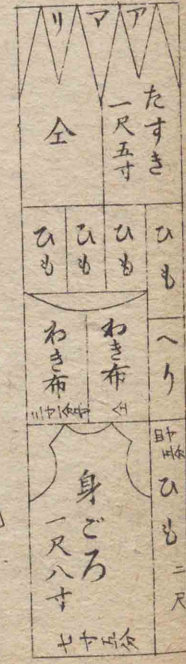 ア
マ
リ
たすき
一尺五寸
仝
ひも
ひも
ひも
ひも
へり
わき布
仝
わき布
ひも
二尺
身ごろ
一尺八寸
七寸五分